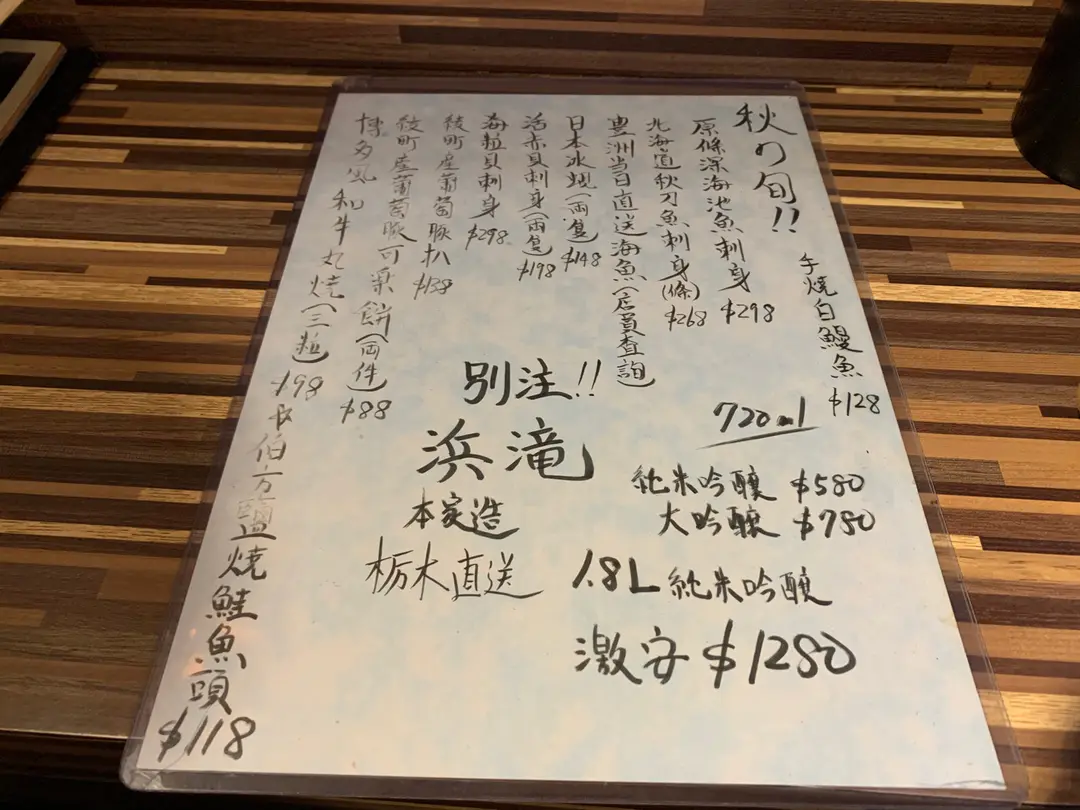 秋の旬!!
手燒白鰻魚 $128
原條深海池魚刺身 $298
北海道秋刀魚刺身(條) $268
豊洲当日直送海魚(店員查詢)
日本水蜆(両隻) $148
活赤貝刺身(両隻) $198
海粒貝刺身 $298
綾町產葡萄豚扒 $138
綾町產葡萄豚可樂餅(両件) $88
博多風和牛丸燒(三粒) $98
伯方鹽燒鮭魚頭 $118
別注!!
浜滝
本家造
栃木直送
720ml
純米吟釀 $580
大吟釀 $780
1.8L 純米吟釀
激安 $1280